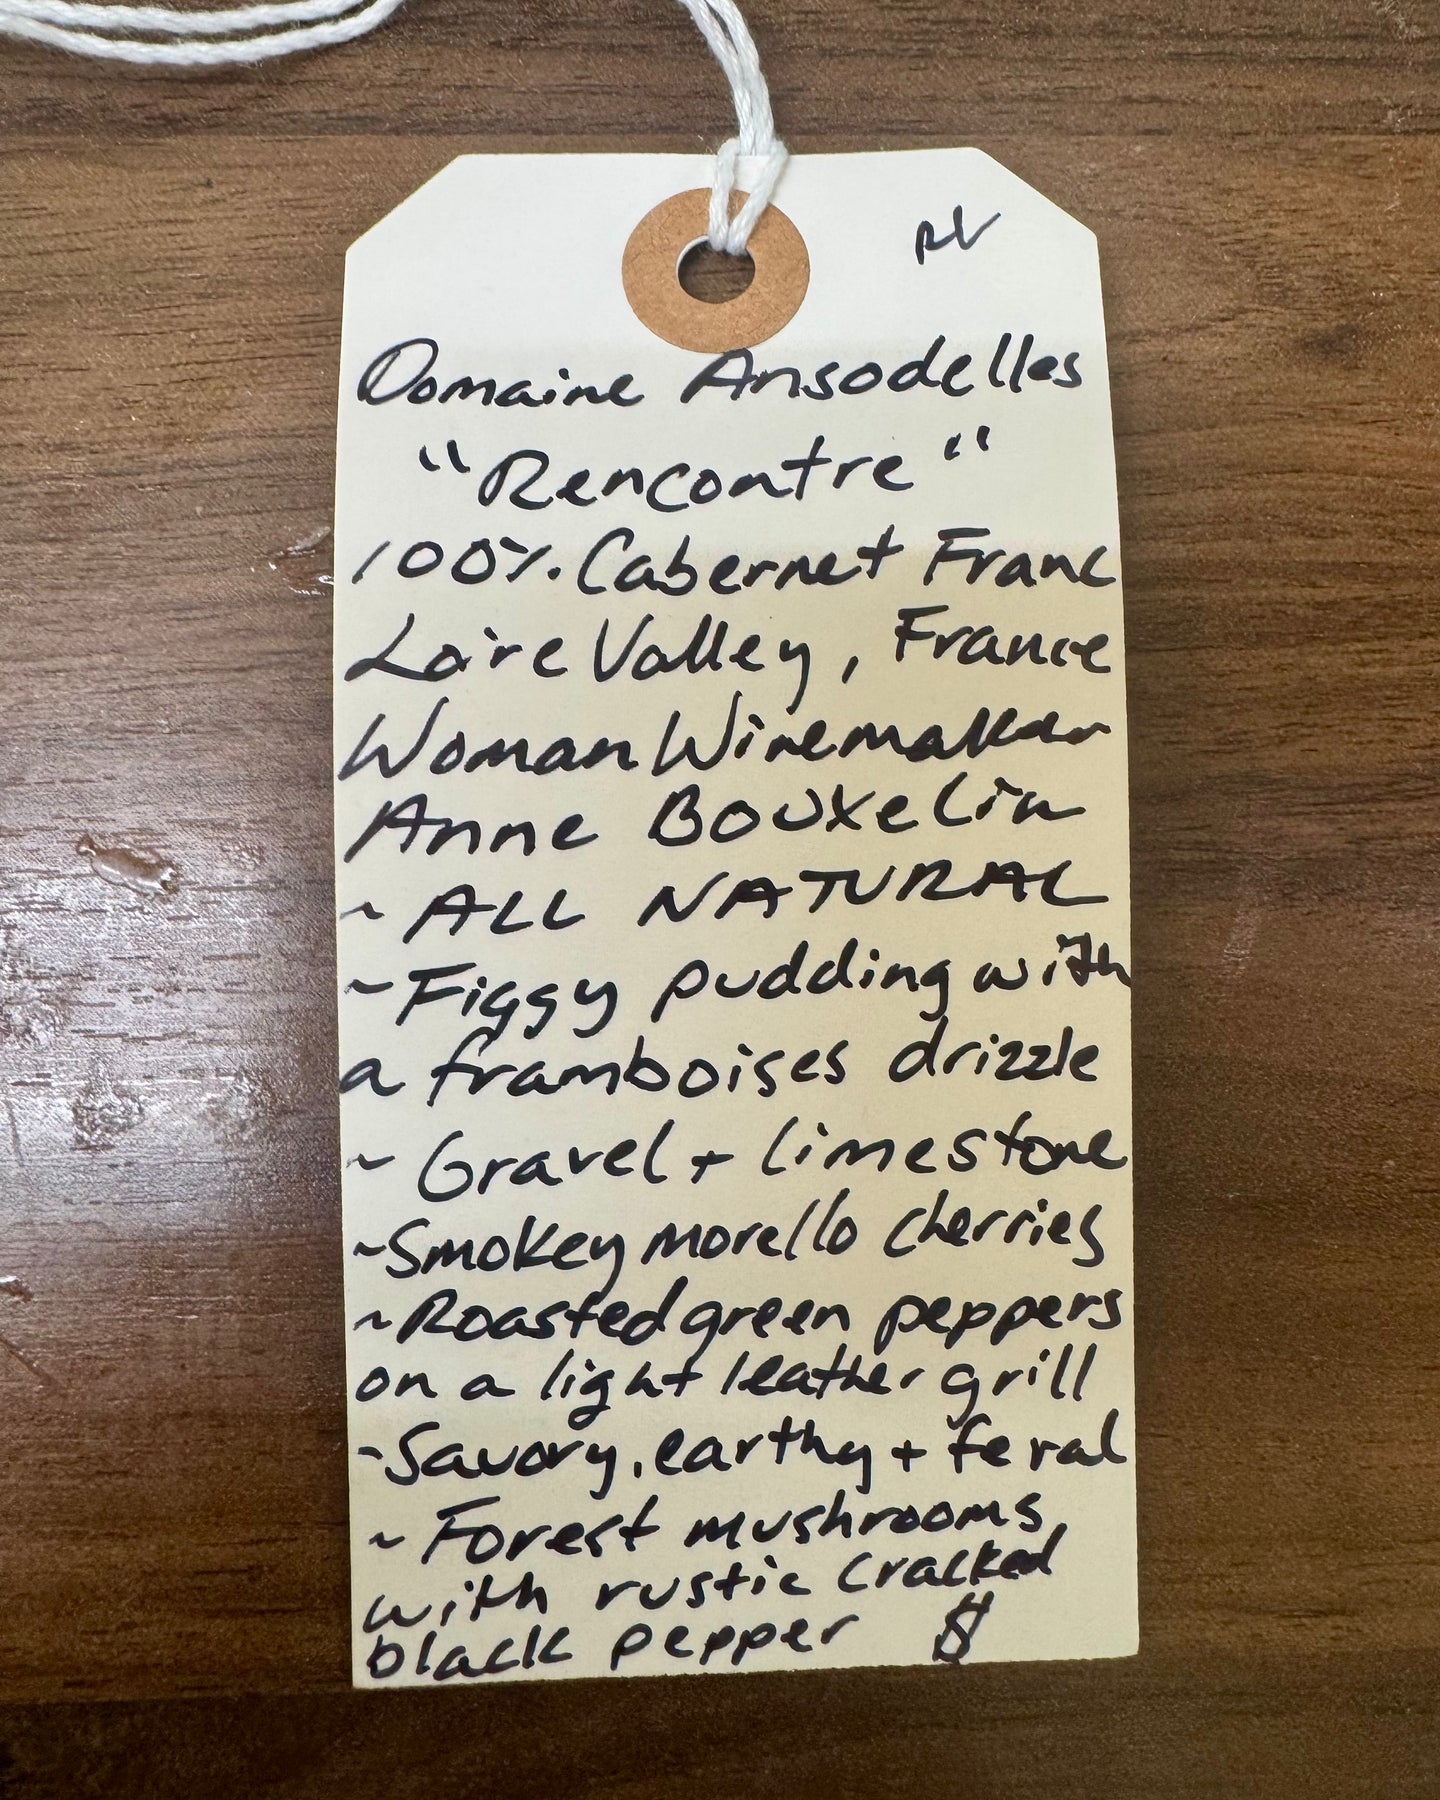 Domaine Ansodelles
"Rencontre"
100% Cabernet Franc
Loire Valley, France
Woman Winemaker
Anne Bouxelin
~ ALL NATURAL
~ Figgy pudding with
a framboises drizzle
~ Gravel + limestone
~ Smokey morello cherries
~ Roasted green peppers
on a light leather grill
~ Savory, earthy + feral
~ Forest mushrooms
with rustic cracked
black pepper